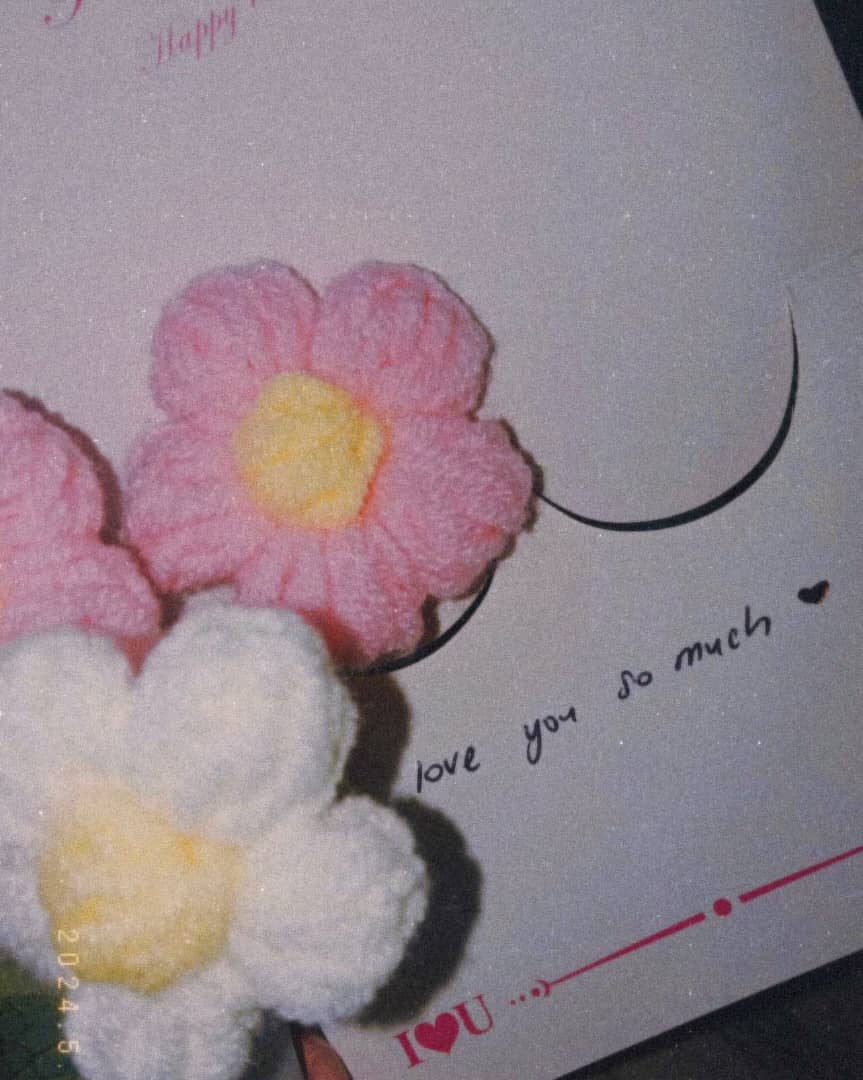 Happy
love you so much ♥
I♥U
2024.5.